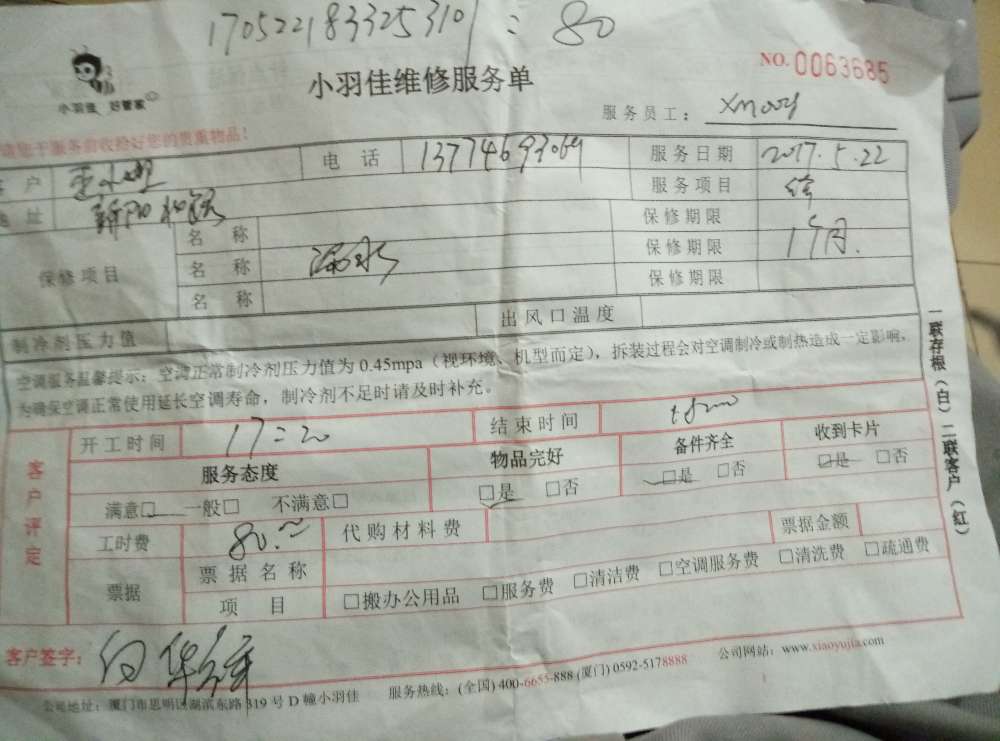 1705221833253101 : 80
小羽佳 好管家
小羽佳维修服务单
NO. 0063685
服务员工：
请您于服务前收拾好您的贵重物品！
客 户 电 话 13774693069 服务日期 2017.5.22
地 址 服务项目
保修项目 名 称 保修期限
名 称 漏水 保修期限 1个月.
名 称 保修期限
制冷剂压力值 出风口温度
空调服务温馨提示：空调正常制冷剂压力值为 0.45mpa（视环境、机型而定），拆装过程会对空调制冷或制热造成一定影响，
为确保空调正常使用延长空调寿命，制冷剂不足时请及时补充。
客户评定 开工时间 17:20 结束时间
服务态度 物品完好 备件齐全 收到卡片
满意□ 一般□ 不满意□ □是 □否 □是 □否 □是 □否
工时费 80.~ 代购材料费 票据金额
票据 票据名称
项 目 □搬办公用品 □服务费 □清洁费 □空调服务费 □清洗费 □疏通费
客户签字：
公司地址：厦门市思明区湖滨东路 319 号 D 幢小羽佳 服务热线：(全国) 400-6655-888 (厦门) 0592-5178888 公司网站：www.xiaoyujia.com
一联存根（白）二联客户（红）